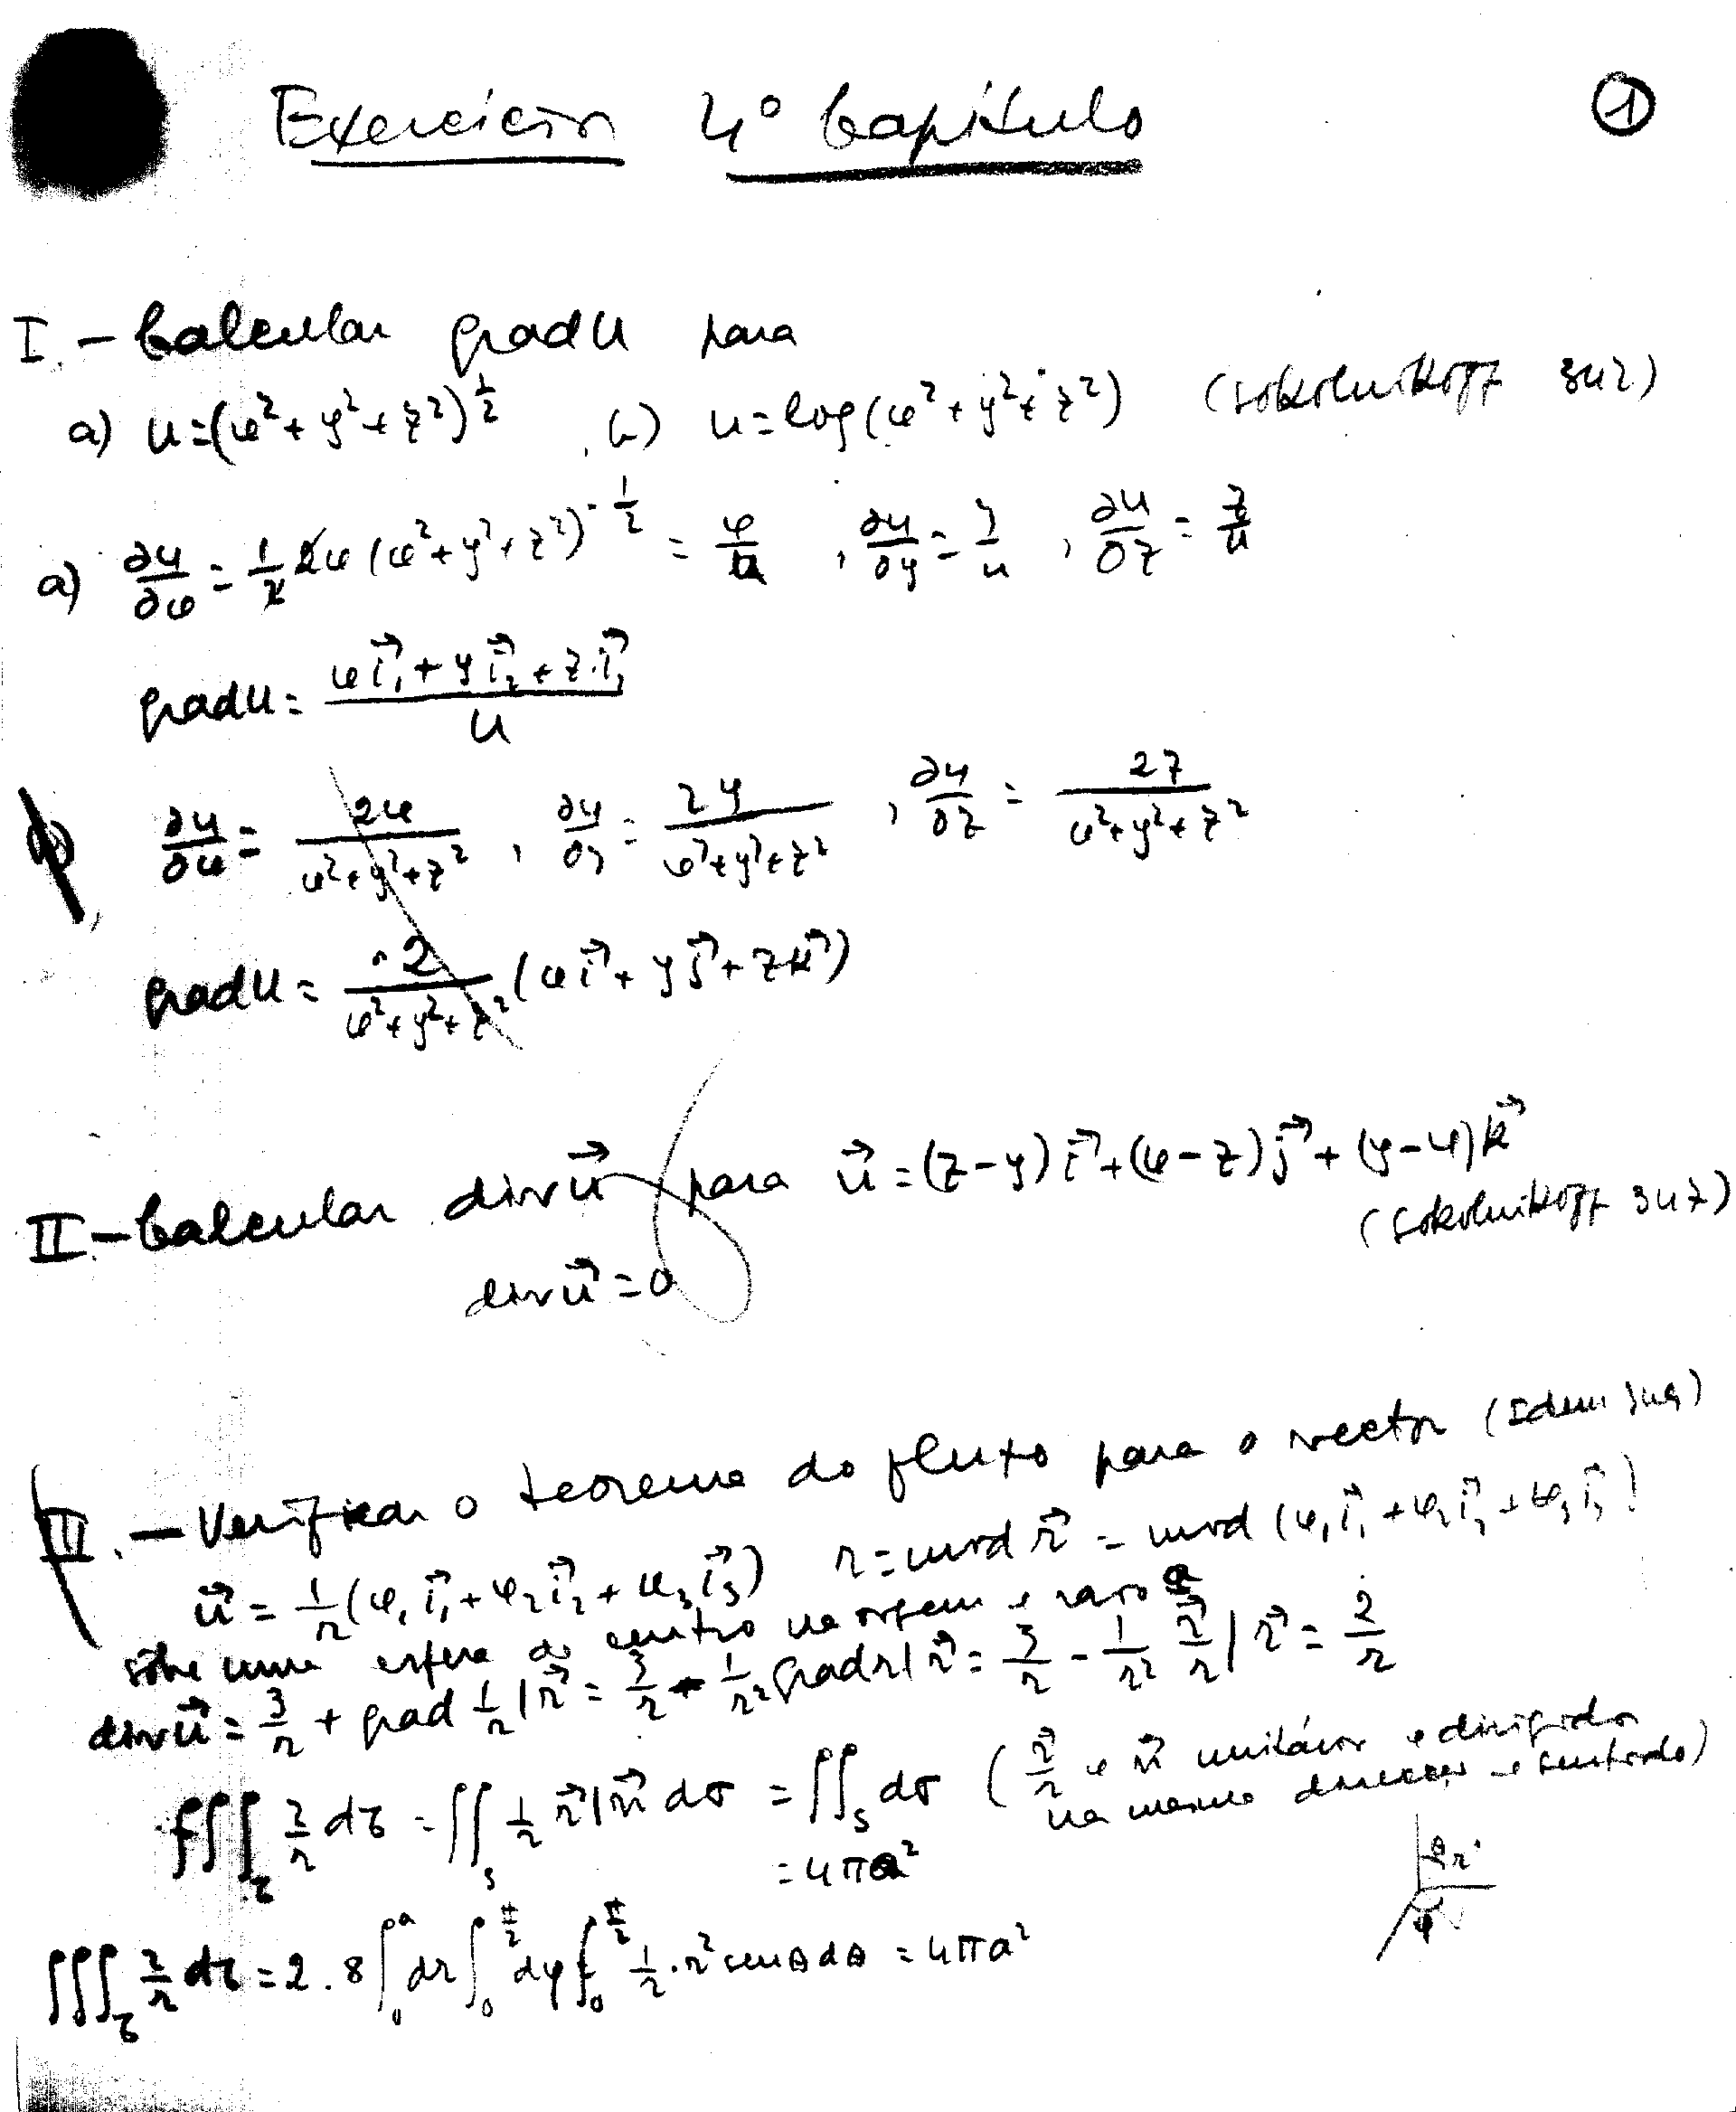 Exercícios 4º Capítulo ①
I. - Calcular grad u para
a) u=(x²+y²+z²)^½, b) u=log(x²+y²+z²) (Sokolnikoff 342)
a) ∂u/∂x = 1/2 2x (x²+y²+z²)^-½ = x/u, ∂u/∂y = y/u, ∂u/∂z = z/u
grad u = (x i⃗₁ + y i⃗₂ + z i⃗₃)/u
b) ∂u/∂x = 2x/(x²+y²+z²), ∂u/∂y = 2y/(x²+y²+z²), ∂u/∂z = 2z/(x²+y²+z²)
grad u = 2/(x²+y²+z²) (x i⃗ + y j⃗ + z k⃗)
II - Calcular div u⃗ para u⃗ = (z-y) i⃗ + (x-z) j⃗ + (y-x) k⃗
(Sokolnikoff 347)
div u⃗ = 0
III. - Verificar o teorema do fluxo para o vector (Idem 349)
u⃗ = 1/r (x₁ i⃗₁ + x₂ i⃗₂ + x₃ i⃗₃) r = mod r⃗ = mod (x₁ i⃗₁ + x₂ i⃗₂ + x₃ i⃗₃)
sôbre uma esfera de centro na origem e raio a
div u⃗ = 3/r + grad 1/r | r⃗ = 3/r - 1/r² grad r | r⃗ = 3/r - 1/r² r⃗/r | r⃗ = 2/r
∫∫∫_τ 2/r dτ = ∫∫_S 1/r r⃗ | n⃗ dσ = ∫∫_S dσ (r⃗/r e n⃗ unitários e dirigidos
na mesma direcção e sentido)
= 4πa²
θ r
φ
∫∫∫_τ 2/r dτ = 2.8 ∫₀^a dr ∫₀^π/2 dφ ∫₀^π/2 1/r . r² sen θ dθ = 4πa²